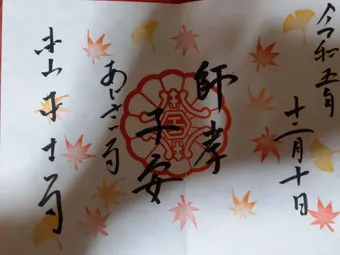 令和五年
十二月十日
師孝
子安
あじさい寺
本山本土寺